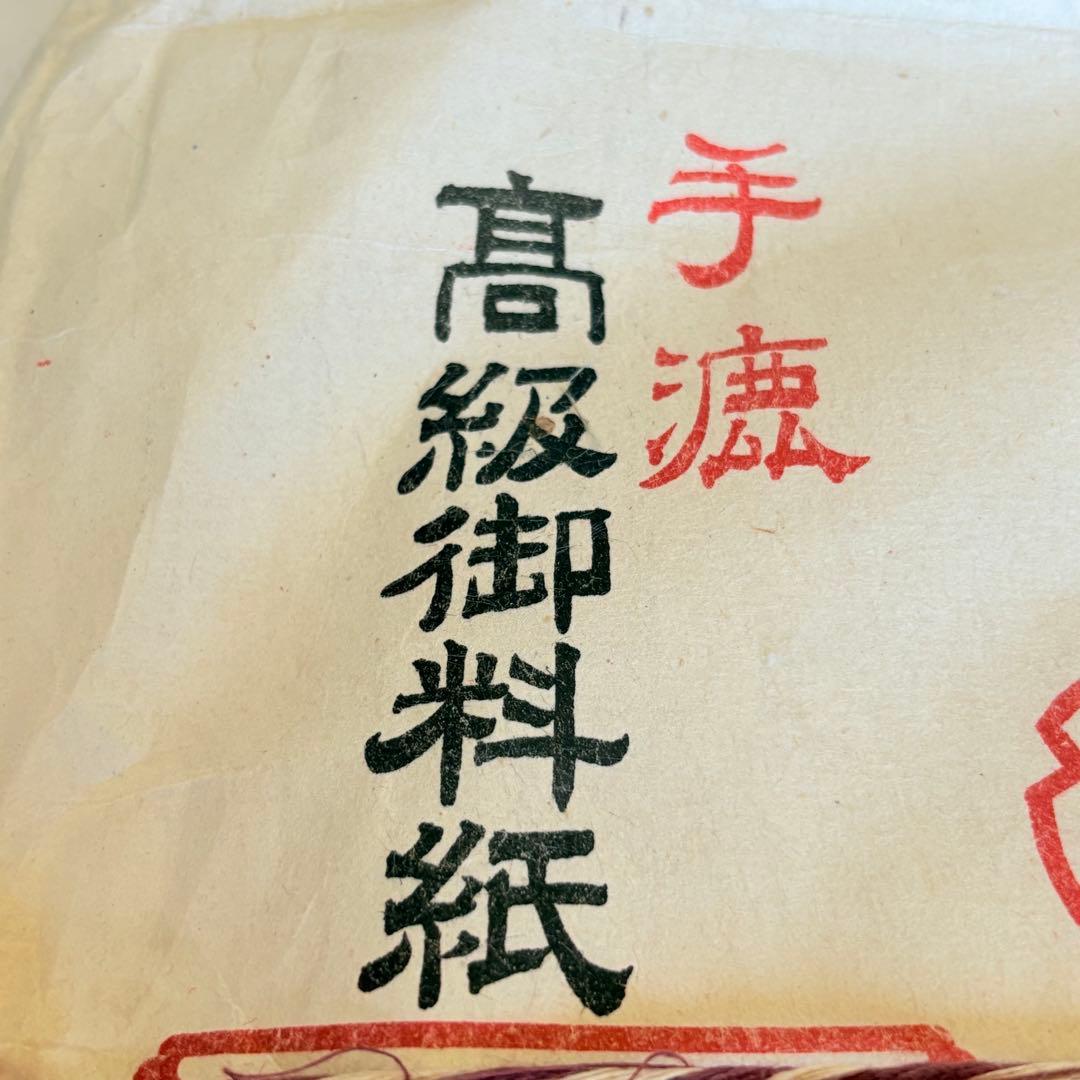 手漉
髙級御料紙